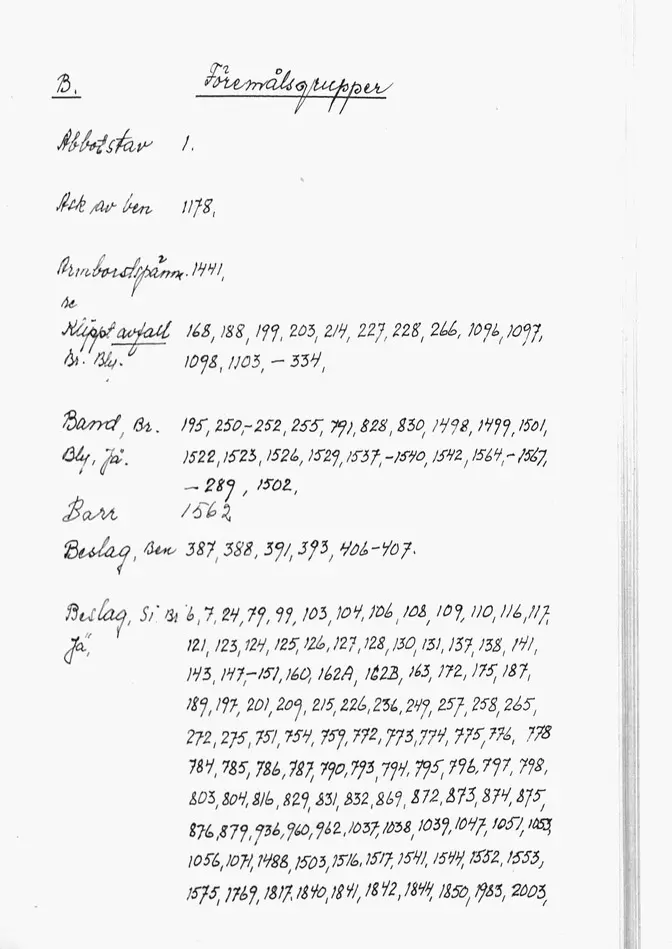 B. Föremålsgrupper
Abbotstav 1.
Ask av ben 1178,
Armborstspänna. 1441,
se
Klippt avfall 168, 188, 199, 203, 214, 227, 228, 266, 1096, 1097,
Br. Bly. 1098, 1103, – 334,
Band, Br. 195, 250,–252, 255, 791, 828, 830, 1498, 1499, 1501,
Bly, Jä. 1522, 1523, 1526, 1529, 1537,–1540, 1542, 1564,–1567,
– 289, 1502,
Barr 1562
Beslag, Ben 387, 388, 391, 393, 406–407.
Beslag, Si Br 6, 7, 24, 79, 99, 103, 104, 106, 108, 109, 110, 116, 117,
Jä, 121, 123, 124, 125, 126, 127, 128, 130, 131, 137, 138, 141,
143, 147,–151, 160, 162A, 162B, 163, 172, 175, 187,
189, 197, 201, 209, 215, 226, 236, 249, 257, 258, 265,
272, 275, 751, 754, 759, 772, 773, 774, 775, 776, 778
784, 785, 786, 787, 790, 793, 794, 795, 796, 797, 798,
803, 804, 816, 829, 831, 832, 869, 872, 873, 874, 875,
876, 879, 936, 960, 962, 1037, 1038, 1039, 1047, 1051, 1053,
1056, 1071, 1488, 1503, 1516, 1517, 1541, 1544, 1552, 1553,
1575, 1769, 1817, 1840, 1841, 1842, 1844, 1850, 1983, 2003,